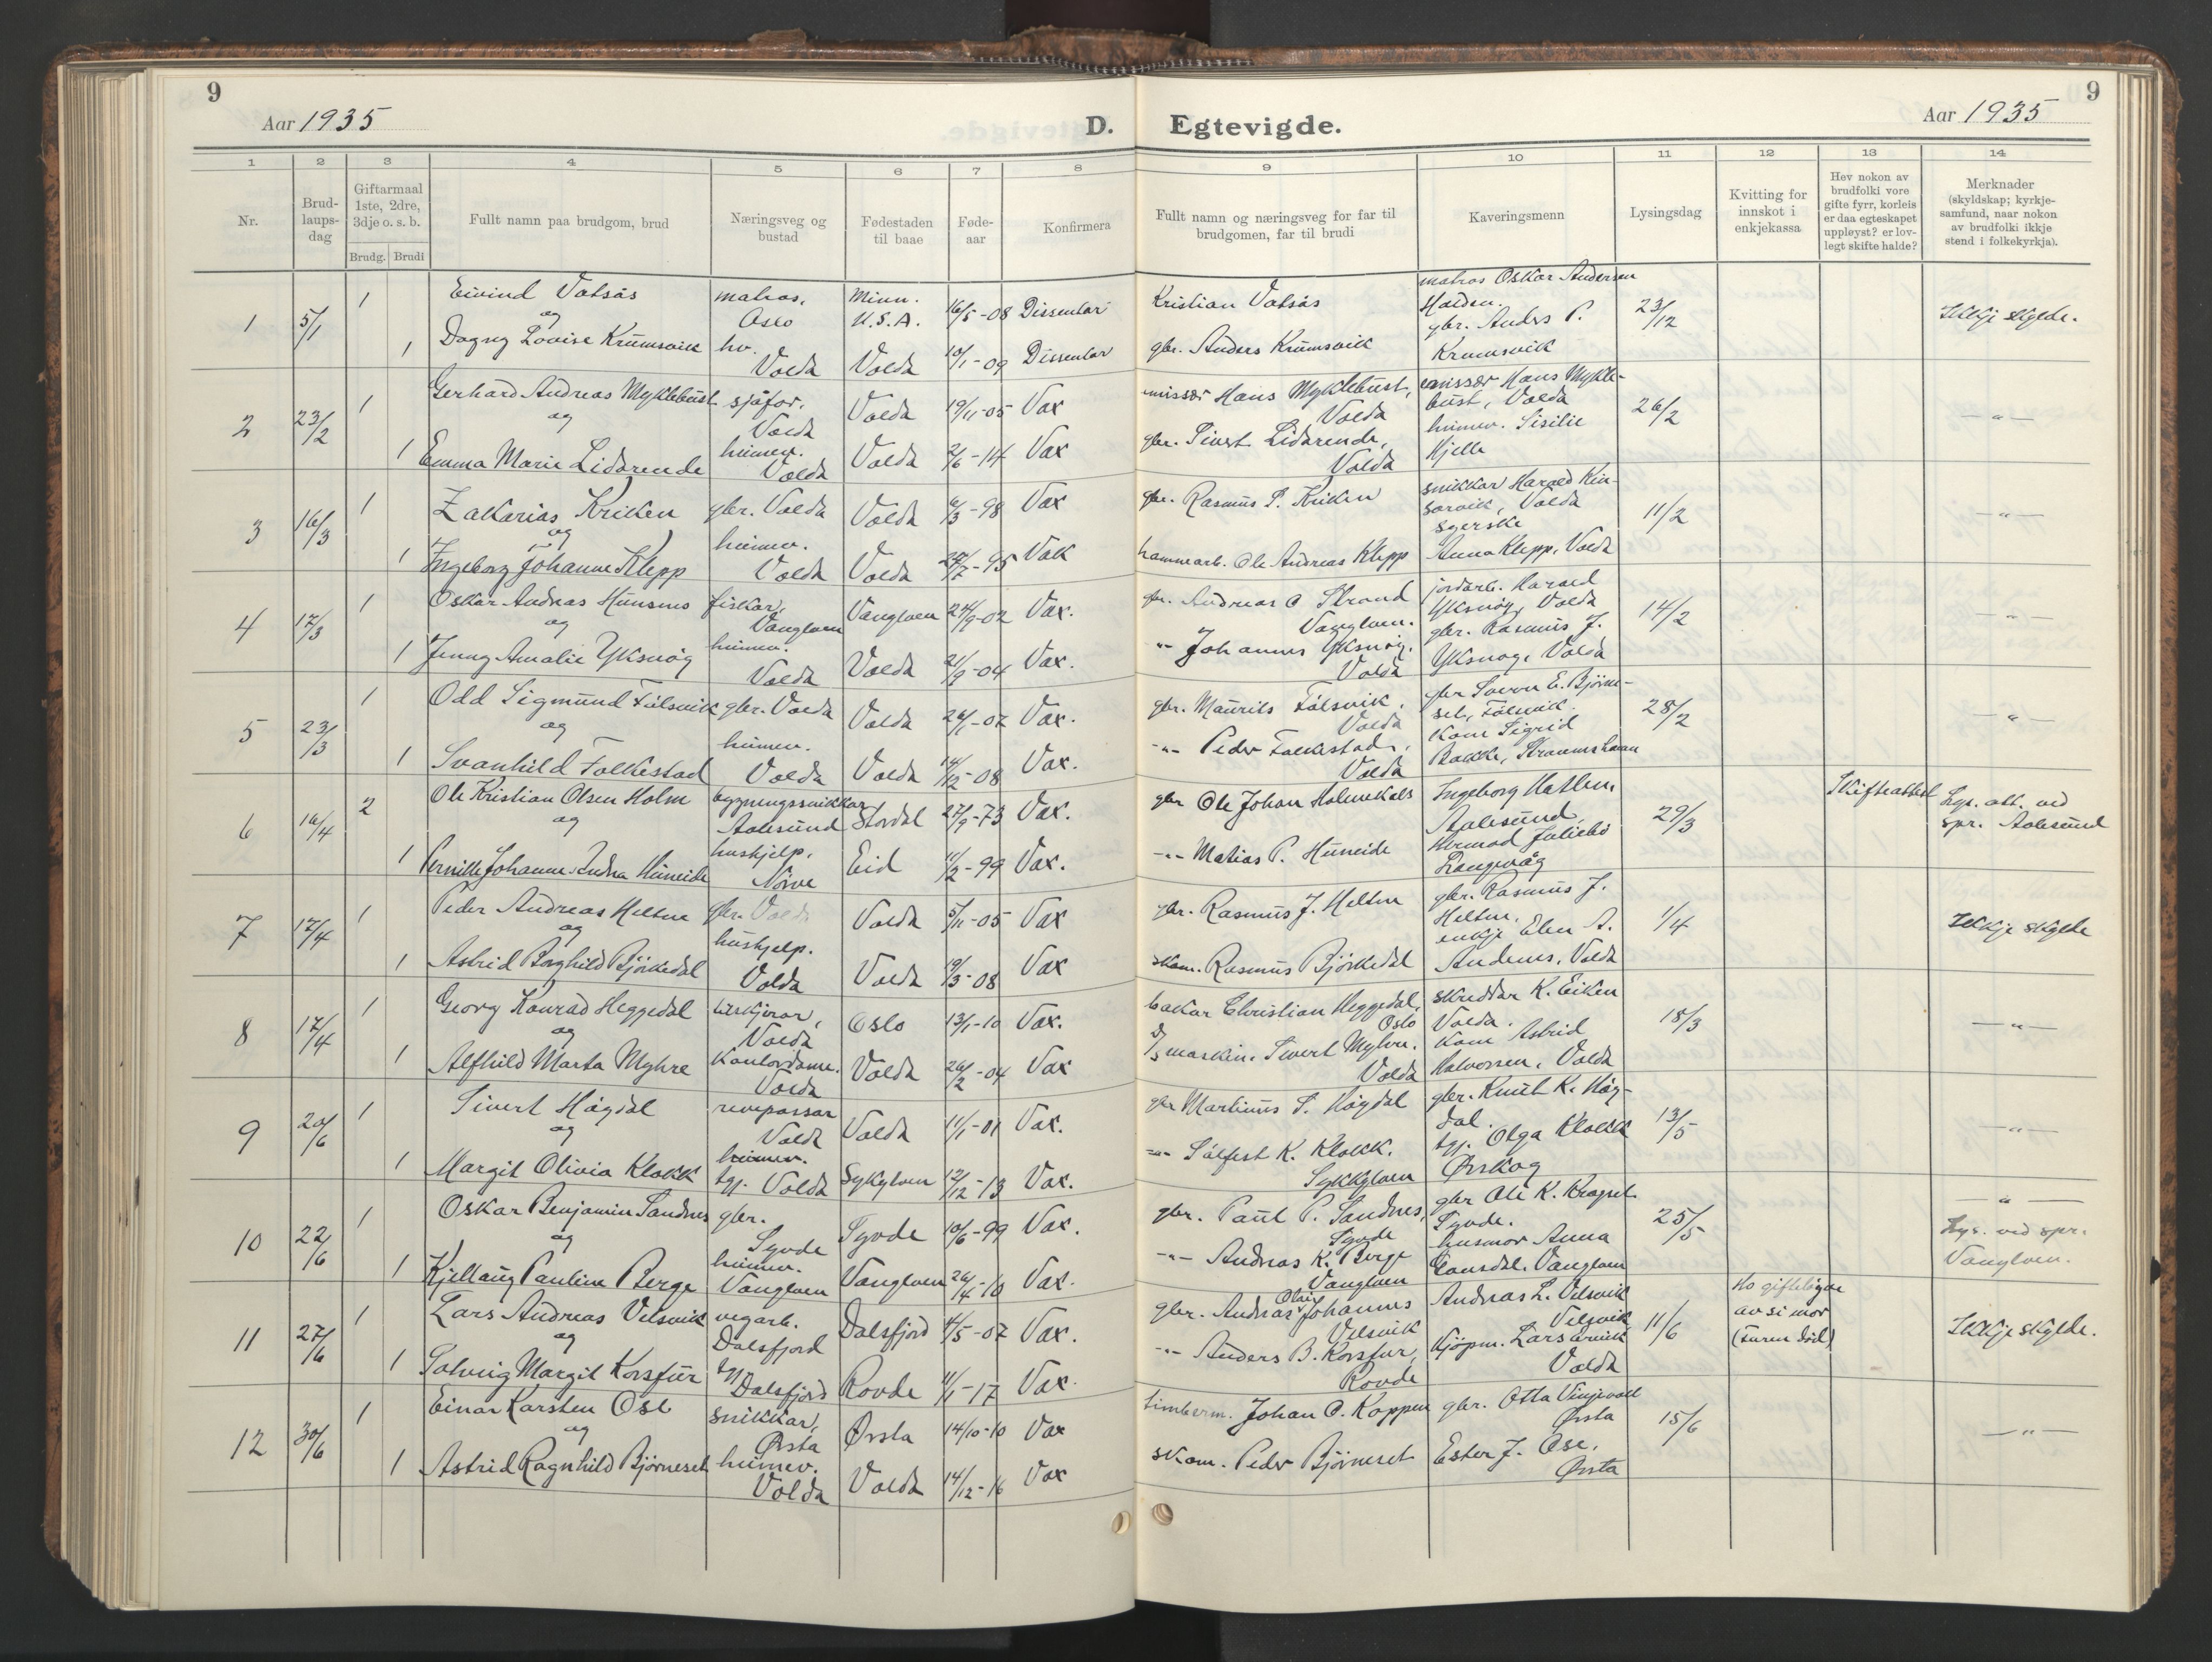 9
Aar 1935
D.
Egtevigde.
Aar 1935
9
1 2 3 4 5 6 7 8 9 10 11 12 13 14
Nr.
Brud-
laups-
dag
Giftarmaal
1ste, 2dre,
3dje o. s. b.
Brudg. Brudi
Fullt namn paa brudgom, brud
Næringsveg og
bustad
Fødestaden
til baae
Føde-
aar
Konfirmera
Fullt namn og næringsveg for far til
brudgomen, far til brudi
Kaveringsmenn
Lysingsdag
Kvitting for
innskot i
enkjekassa
Hev nokon av
brudfolki vore
gifte fyrr, korleis
er daa egteskapet
uppløyst? er lov-
legt skifte halde?
Merknader
(skyldskap; kyrkje-
samfund, naar nokon
av brudfolki ikkje
stend i folkekyrkja).
1 5/1
1 Eivind Vatsås matros, Oslo Minn. U.S.A. 16/5-08 Dissentar Kristian Vatsås
og
1 Dagny Lovise Krumsvik hv. Volda Volda 10/1-09 Dissentar gbr. Anders Krumsvik
matros Oskar Andersen
Halden.
gbr. Anders P.
Krumsvik
23/12
Ikkje skylde.
2 23/2
1 Gerhard Andreas Myklebust sjåfør, Volda Volda 19/11-05 Vax emissær Hans Myklebust, Volda
og
1 Emma Marie Lidarende heimev. Volda Volda 2/6-14 Vax gbr. Sivert Lidarende, Volda
emissær Hans Mykle-
bust, Volda
heimev. Sisilie
Hjelle
26/2
-"-
3 16/3
1 Zakarias Kriken gbr. Volda Volda 6/3-98 Vax gbr. Rasmus P. Kriken
og
1 Ingeborg Johanne Klepp heimev. Volda Volda 27/7-95 Vax hammararb. Ole Andreas Klepp
snikkar Harald Kin-
sarvik, Volda
syerske
Anna Klepp, Volda
11/2
-"-
4 17/3
1 Oskar Andreas Hunsnes fiskar, Vanylven Vanylven 24/9-02 Vax. gbr. Andreas O Strand Vanylven.
og
1 Jenny Amalie Yksnøy heimev. Volda Volda 21/9-04 Vax. -"- Johannes Yksnøy. Volda
jordarb. Harald
Yksnøy, Volda
gbr. Rasmus J.
Yksnøy, Volda
14/2
-"-
5 23/3
1 Odd Sigmund Folsvik gbr. Volda Volda 26/1-07 Vax. gbr. Maurits Folsvik. Volda
og
1 Svanhild Folkestad heimev. Volda Volda 14/12-08 Vax. -"- Peder Folkestad, Volda
gbr Søren E. Bjørne-
set, Folsvik.
Kone Sigrid
Bakke, Straumshamn
28/2
-"-
6 16/4
2 Ole Kristian Olsen Holm bygningssnikkar Aalesund Stordal 27/9-73 Vax. gbr Ole Johan Holmekals
og
1 Pernille Johanne Indna Huneide hushjelp. Nørve Eid 11/2-99 Vax. -"- Matias P. Huneide
Ingeborg Hatlem,
Aalesund,
Hermod Juliebø
Langevåg
29/3
Skifteattest
Lys. att. ved
spr. Aalesund
7 17/4
1 Peder Andreas Heltne gbr. Volda Volda 5/11-05 Vax gbr. Rasmus J. Heltne
og
1 Astrid Borghild Bjørkedal hushjelp. Volda Volda 19/3-08 Vax skom. Rasmus Bjørkedal
gbr. Rasmus J.
Heltne.
enkje Elen A.
Andenes, Volda
1/4
Ikkje skylde
8 17/4
1 Georg Konrad Heggedal Volda Oslo 13/1-10 Vax. bakar Christian Heggedal, Oslo
og
1 Alfhild Marta Myhre Kontordame. Volda Volda 26/2-04 Vax D/S maskin. Sivert Myhre. Volda
skreddar K. Eiken
Volda.
Kone Astrid
Halvorsen, Volda
18/3
-"-
9 20/6
1 Sivert Høydal revepassar Volda Volda 11/1-01 Vax. gbr Martinus S. Høydal
og
1 Margit Olivia Klokk heimev. tgj. Volda Sykylven 12/12-13 Vax. -"- Sølfest K. Klokk. Sykkylven
gbr. Knut K. Høy-
dal.
tgj. Olga Klokk
Ørskog
13/5
-"-
10 22/6
1 Oskar Benjamin Sandnes gbr. Syvde Syvde 10/6-99 Vax. gbr. Paul P. Sandnes, Syvde
og
1 Kjellaug Pauline Berge heimev. Vanylven Vanylven 26/4-10 Vax. -"- Andreas K. Berge Vanylven
gbr Ole K. Kragset
Syvde.
husmor Anna
Gausdal, Vanylven
25/5
-"-
Lys. ved spr.
Vanylven.
11 27/6
1 Lars Andreas Velsvik vegarb. Dalsfjord Dalsfjord 4/5-07 Vax. gbr. Andreas Olais Johannes Velsvik
og
1 Solveig Margit Korsfur tgj Dalsfjord Rovde 11/1-17 Vax. -"- Anders B. Korsfur, Rovde
Andreas L. Velsvik
Velsvik
Kjøpm. Lars Ørvik
Volda
11/6
Ho gifteløyve
av si mor
(faren død)
Ikkje skylde.
12 30/6
1 Einar Karsten Ose snikkar, Ørsta Ørsta 14/10-10 Vax timberm. Johan O. Koppen
og
1 Astrid Ragnhild Bjørneset heimev. Volda Volda 14/12-16 Vax skom. Peder Bjørneset
gbr. Otta Vinjevoll
Ørsta
Ester J. Ose,
Ørsta
15/6
-"-